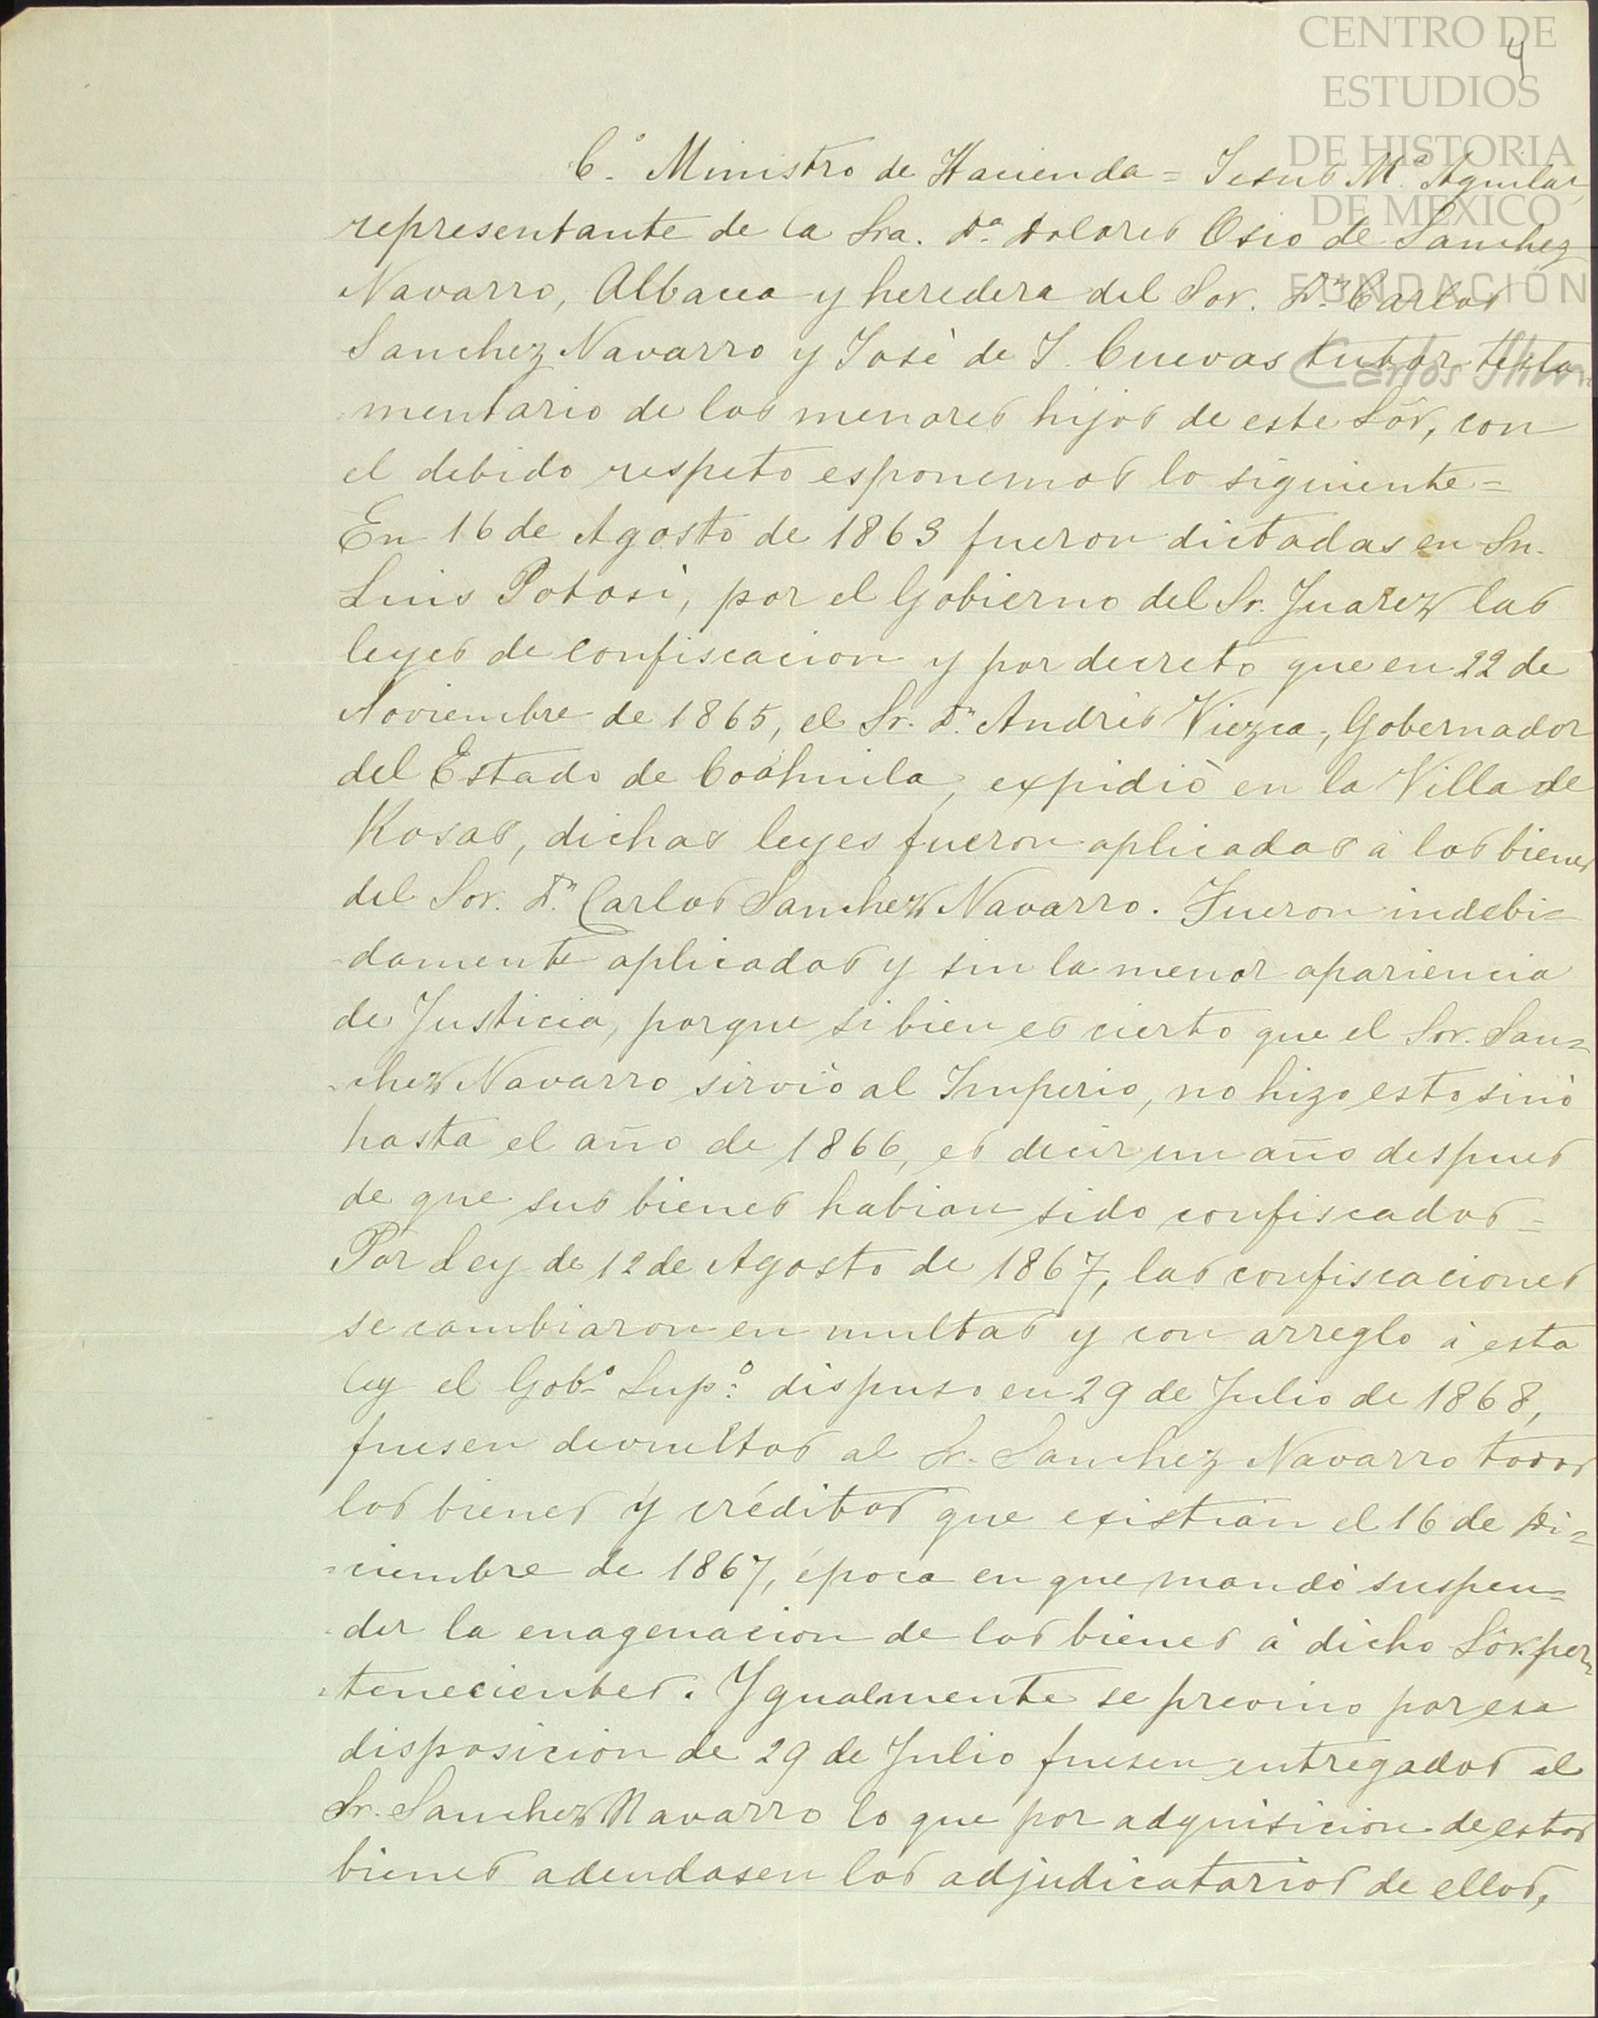 CENTRO DE
ESTUDIOS
DE HISTORIA
DE MEXICO
FUNDACIÓN
Carlos Slim
4
C.º Ministro de Hacienda = Jesus M.ª Aguilar
representante de la Sra. D.ª Dolores Osio de Sanchez
Navarro, Albacea y heredera del Sor. D.n Carlos
Sanchez Navarro y José de J. Cuevas tutor testa
mentario de los menores hijos de este Sôr, con
el debido respeto esponemos lo siguiente =
En 16 de Agosto de 1863 fueron dictadas en Sn.
Luis Potosì, por el Gobierno del Sr. Juarez las
leyes de confiscacion y por decreto que en 22 de
Noviembre de 1865, el Sr. D.n Andrés Viezca, Gobernador
del Estado de Coahuila, expidiò en la Villa de
Rosas, dichas leyes fueron aplicadas à los bienes
del Sor. D.n Carlos Sanchez Navarro. Fueron indebi=
-damente aplicadas y sin la menor apariencia
de Justicia, porque si bien es cierto que el Sor. San=
-chez Navarro sirviò al Imperio, no hizo esto sinò
hasta el año de 1866, es decir un año despues
de que sus bienes habian sido confiscados =
Por Ley de 12 de Agosto de 1867, las confiscaciones
se cambiaron en multas y con arreglo à esta
ley el Gob.º Sup.º dispuso en 29 de Julio de 1868,
fuesen devueltos al Sr. Sanchez Navarro todos
los bienes y créditos que existian el 16 de Di=
=ciembre de 1867, época en que mandò suspen=
-der la enagenacion de los bienes à dicho Sôr. per=
=tenecientes. Ygualmente se previno por esa
disposicion de 29 de Julio fuesen entregados al
Sr. Sanchez Navarro lo que por adquisicion de estos
bienes adeudasen los adjudicatarios de ellos,